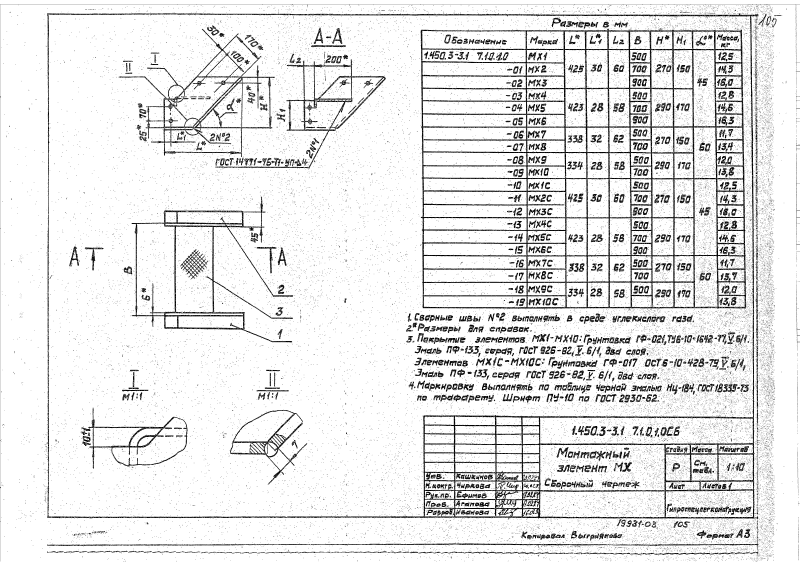 105
Размеры в мм
Обозначение Марка L* L₁* L₂ B H* H₁ α°* Масса, кг
1.450.3-3.1 7.1.0.1.0 МХ1 425 30 60 500 270 150 45 12,5
-01 МХ2 700 14,3
-02 МХ3 900 16,0
-03 МХ4 423 28 58 500 290 170 12,8
-04 МХ5 700 14,6
-05 МХ6 900 16,3
-06 МХ7 338 32 62 500 270 150 60 11,7
-07 МХ8 700 13,4
-08 МХ9 334 28 58 500 290 170 12,0
-09 МХ10 700 13,8
-10 МХ1С 425 30 60 500 270 150 45 12,5
-11 МХ2С 700 14,3
-12 МХ3С 900 16,0
-13 МХ4С 423 28 58 500 290 170 12,8
-14 МХ5С 700 14.6
-15 МХ6С 900 16,3
-16 МХ7С 338 32 62 500 270 150 60 11,7
-17 МХ8С 700 13,7
-18 МХ9С 334 28 58 500 290 170 12,0
-19 МХ10С 13,8
А-А
I
II
30*
170*
100*
40*
H*
70*
25*
α*
L₁*
L*
2N°2
ГОСТ 14771-76-Т1-УП-Δ4
L₂
200*
H₁
2N°1
А
А
B
45*
6*
2
3
1
I
М1:1
10±1
II
М1:1
7
1. Сварные швы N°2 выполнять в среде углекислого газа.
2.* Размеры для справок.
3. Покрытие элементов МХ1-МХ10: Грунтовка ГФ-021, ТУ6-10-1642-77, V. 6/1.
Эмаль ПФ-133, серая, ГОСТ 926-82, V. 6/1, два слоя.
Элементов МХ1С-МХ10С: Грунтовка ГФ-017 ОСТ6-10-428-79, V. 6/1,
Эмаль ПФ-133, серая ГОСТ 926-82, V. 6/1, два слоя.
4. Маркировку выполнять по таблице черной эмалью НЦ-184, ГОСТ 18335-73
по трафарету. Шрифт ПУ-10 по ГОСТ 2930-62.
1.450.3-3.1 7.1.0.1.0СБ
Монтажный
элемент МХ
Сборочный чертеж
Стадия Масса Масштаб
Р См. табл. 1:10
Лист Листов 1
Гипроспецлегконструкция
Утв. Кашкинов
Н.контр. Чиркова
Рук.пр. Ефимов
Пров. Агапова
Разраб. Иванова
19931-03 105
Копировал Формат А3